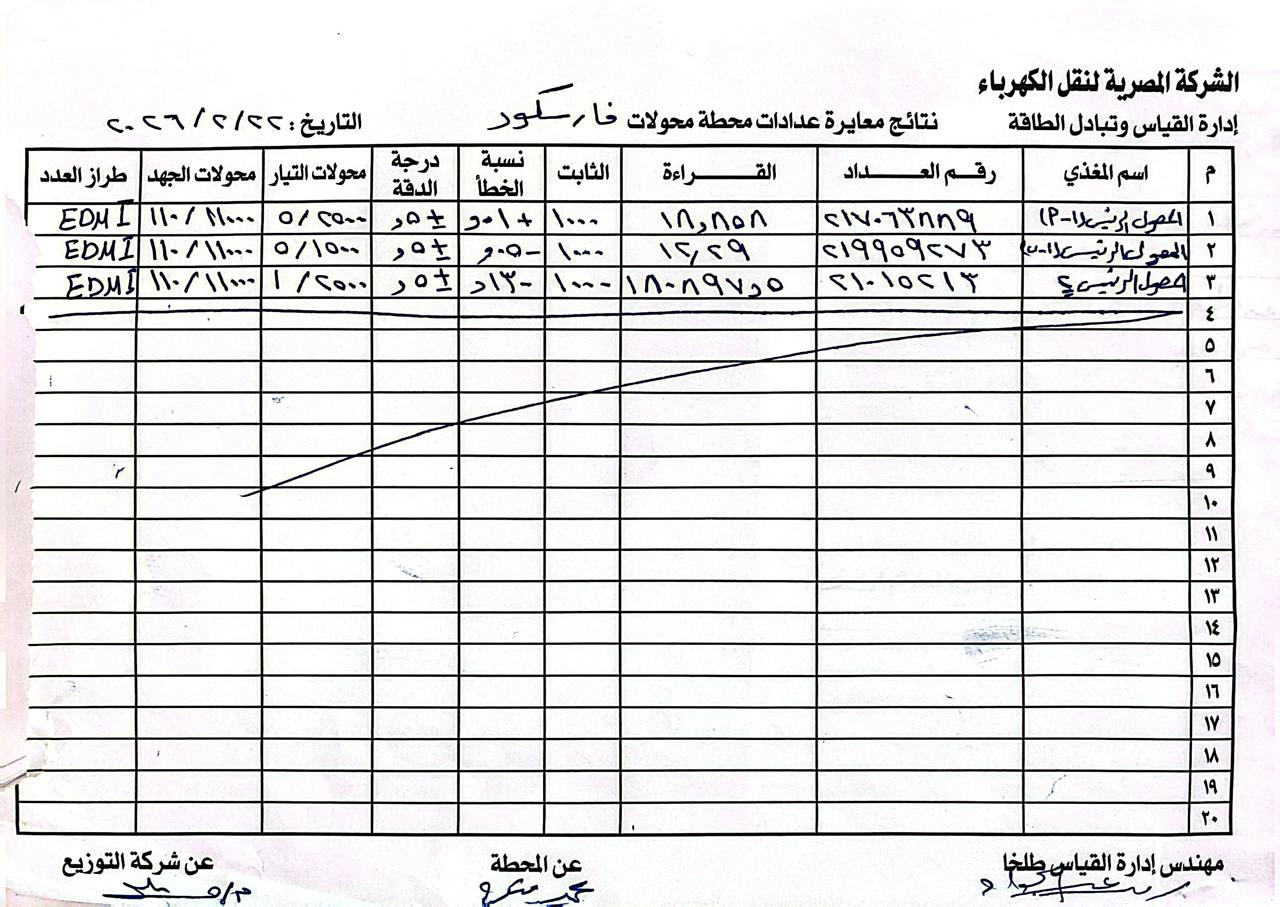 الشركة المصرية لنقل الكهرباء
إدارة القياس وتبادل الطاقة نتائج معايرة عدادات محطة محولات فارسكور التاريخ: ٢٢/٢/٢٠٢٦
م اسم المغذي رقم العداد القراءة الثابت نسبة الخطأ درجة الدقة محولات التيار محولات الجهد طراز العدد
١ المحول الرئيسي (١-٢) ٢١٧٠٦٣٨٨٩ ١٨,٨٥٨ ١٠٠٠ +٠١و ±٥و ٢٥٠٠/٥ ١١٠٠٠/١١٠ EDMI
٢ المحول الرئيسي (١-ب) ٢١٩٩٥٩٢٧٣ ١٢,٢٩ ١٠٠٠ -٠٥و ±٥و ١٥٠٠/٥ ١١٠٠٠/١١٠ EDMI
٣ المحول الرئيسي ٢ ٢١٠١٥٢١٣ ١٨٠٨٩٧,٥ ١٠٠٠ -١٣و ±٥و ٢٥٠٠/١ ١١٠٠٠/١١٠ EDMI
٤
٥
٦
٧
٨
٩
١٠
١١
١٢
١٣
١٤
١٥
١٦
١٧
١٨
١٩
٢٠
مهندس إدارة القياس طلخا عن المحطة عن شركة التوزيع